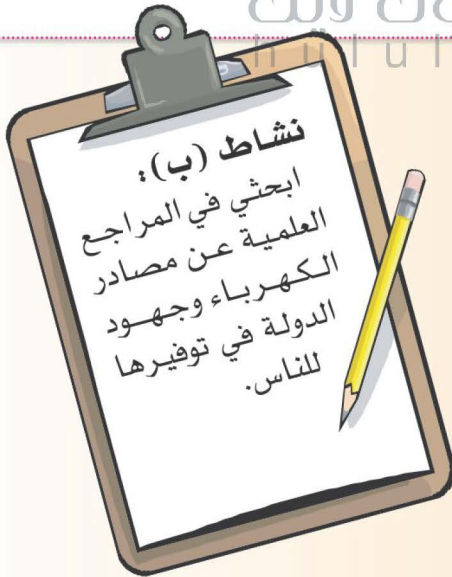 نشاط (ب):
ابحثي في المراجع
العلمية عن مصادر
الكهرباء وجهود
الدولة في توفيرها
للناس.